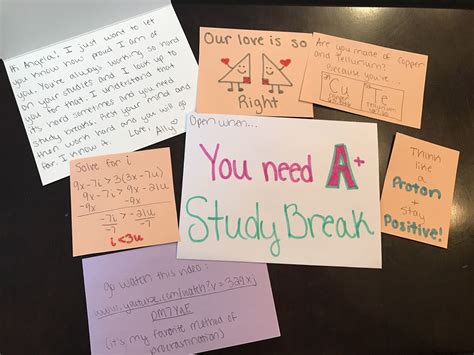 Hi Angela! I just want to let
you know how proud I am of
you. You're always working so hard
on your studies and I look up to
you for that. I understand that
it's hard sometimes and you need
study breaks. Rest your mind and
then work hard and you will go
far. I know it.
Love, Ally
Our love is so
Right
Are you made of Copper
and Tellurium?
Because you're...
Cu
Te
Solve for i
9x-7i > 3(3x-7u)
9x-7i > 9x-21u
-9x -9x
-7i > -21u
-7 -7
i<3u
Open when...
You need A+
Study Break
Think
like a
Proton
+ stay
Positive!
go watch this video:
(it's my favorite method of
procrastination)